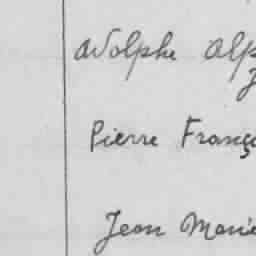 Adolphe Alp
J
Pierre Franç
Jean Marie